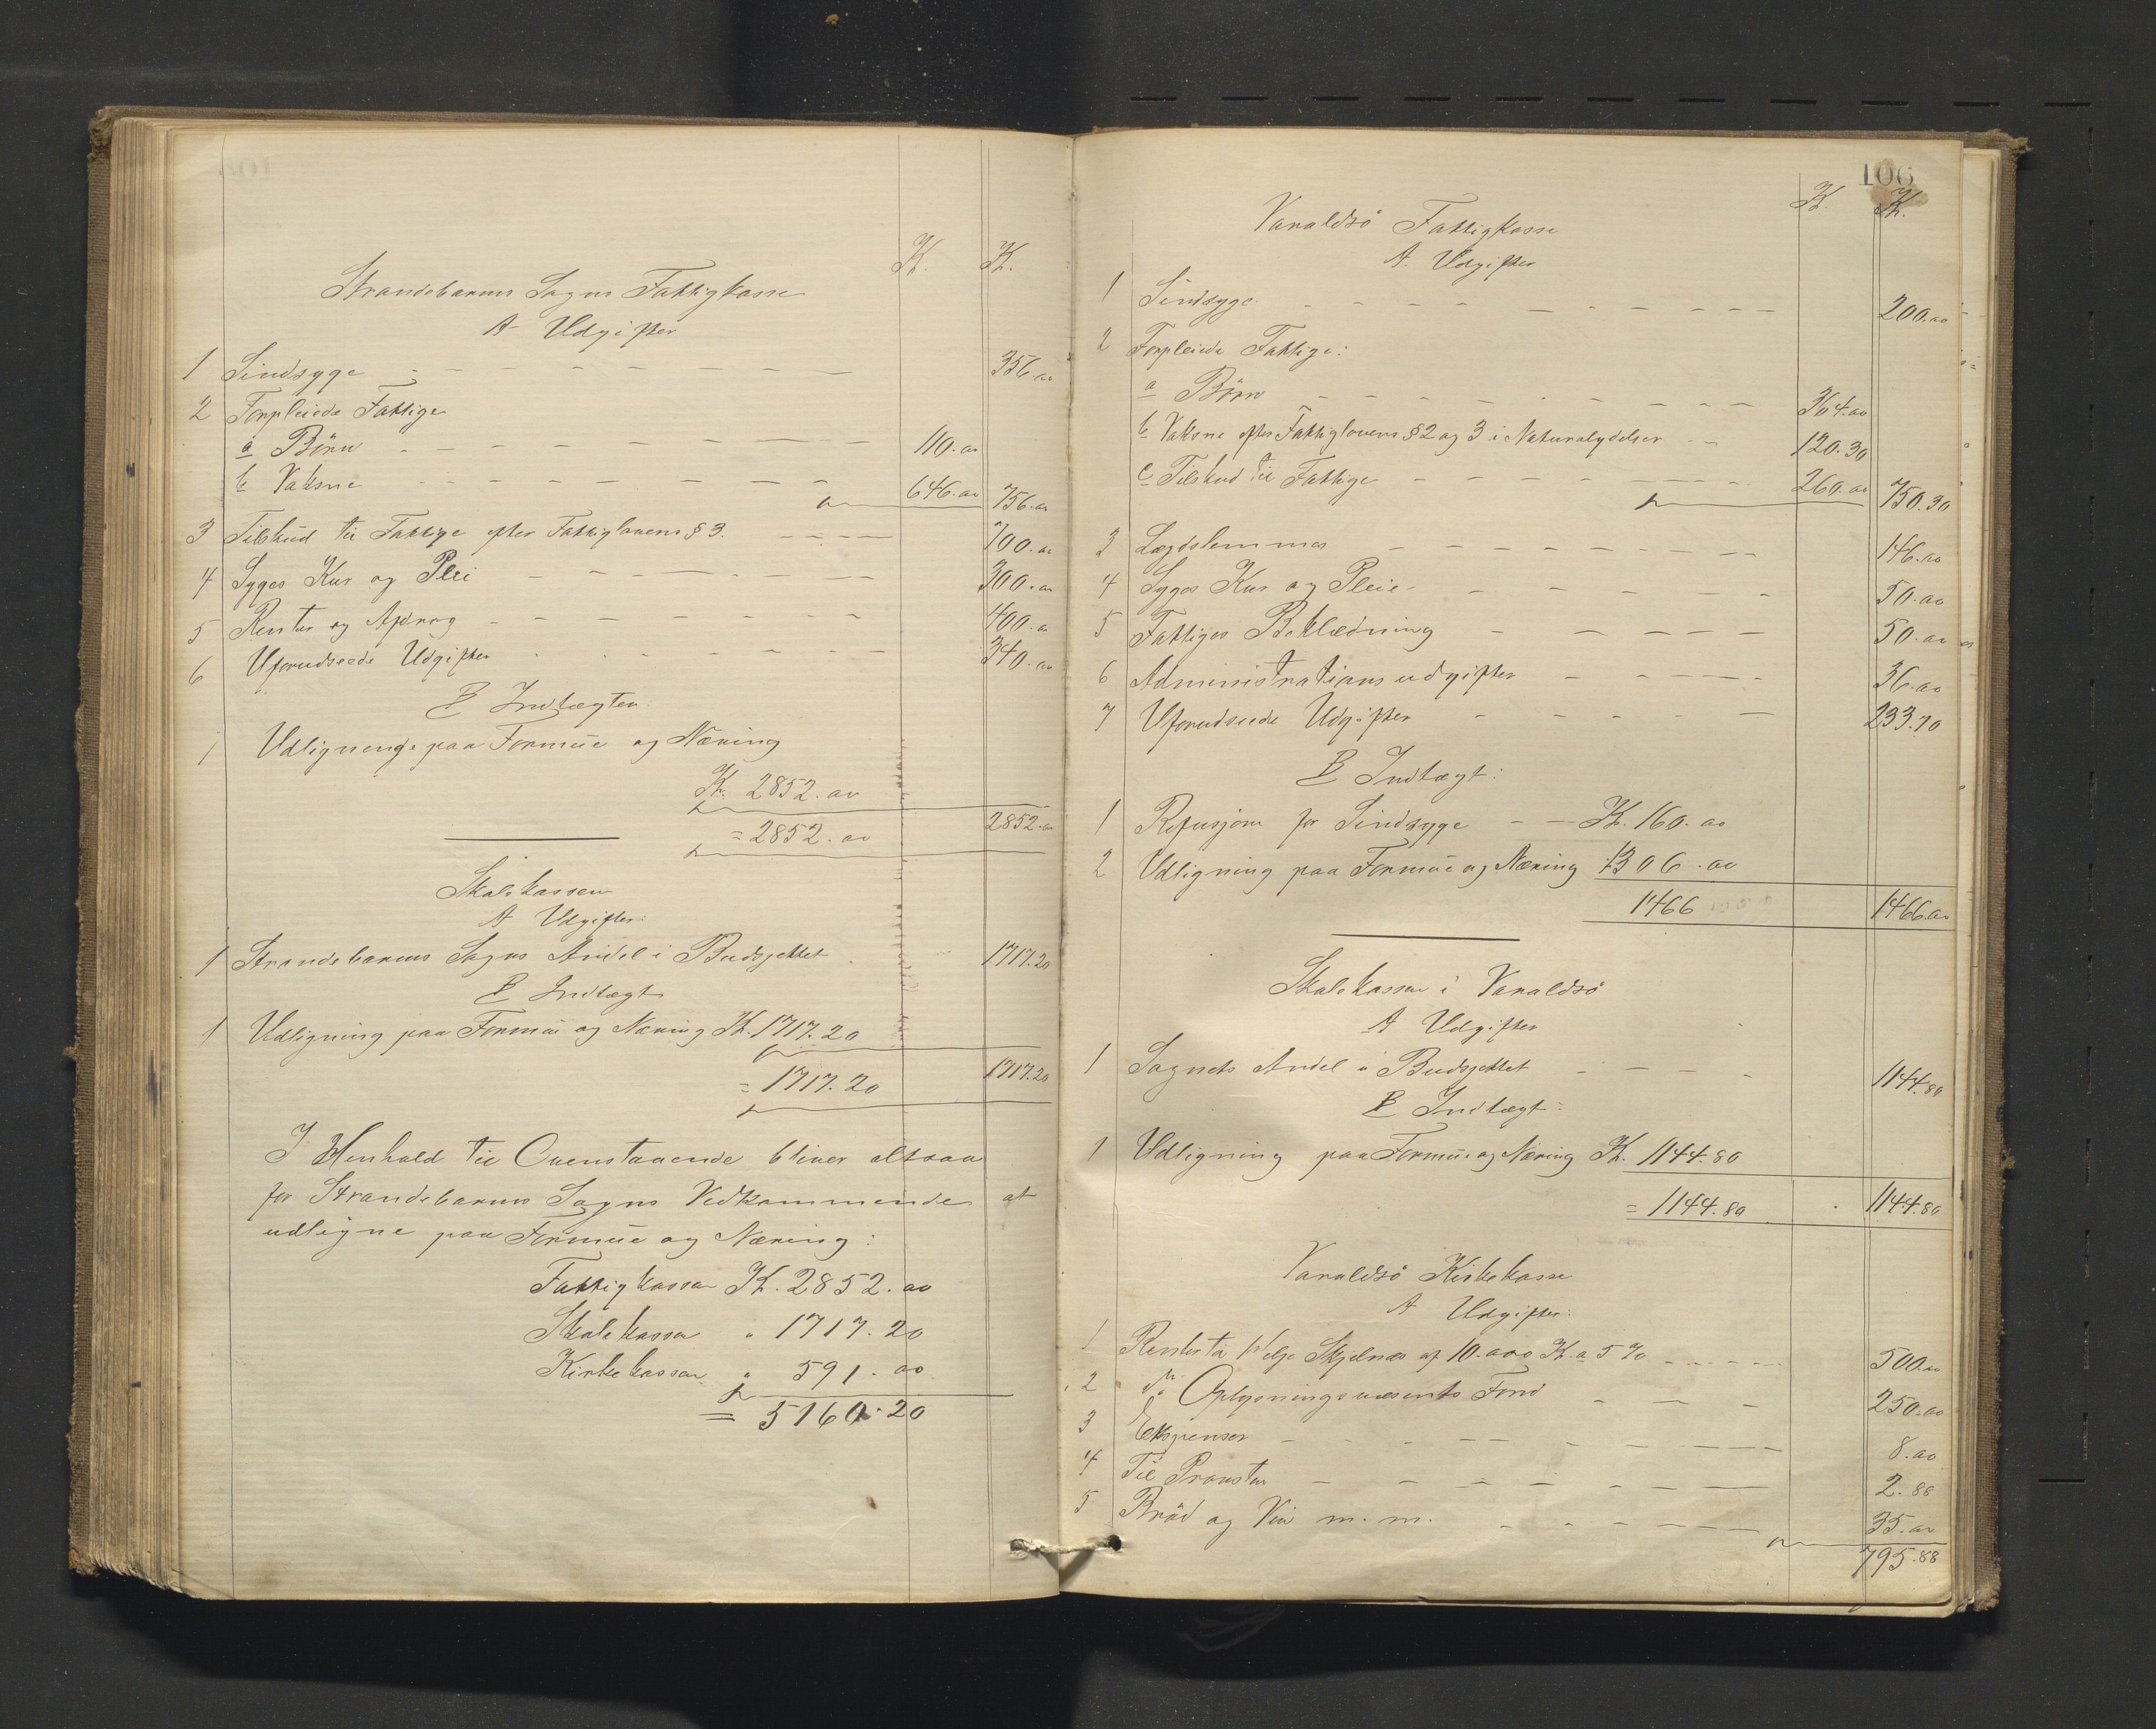 K. K.
Strandebarms Sogns Fattigkasse
A Udgifter
1 Sindsyge - - - - - - - 356.00
2 Forpleiede Fattige
a Börn - - - - - - - 110.00
b Voksne - - - - - - - 646.00 756.00
3 Tilskud til Fattige efter Fattiglovens § 3. - - - - 700.00
4 Syges Kur og Pleie - - - - - - 300.00
5 Renter og Afdrag - - - - - - 400.00
6 Uforudseede Udgifter - - - - - - 340.00
B Indtægter:
1 Udligninge paa Formue og Næring
Kr. 2852.00
= 2852.00 2852.00
Skolekassen
A Udgifter:
1 Strandebarms Sogns Andel i Budsjettet 1717.20
B Indtægt
1 Udligning paa Formue og Næring K. 1717.20
= 1717.20 1717.20
I Henhold til Ovenstaaende bliver altsaa
for Strandebarms Sogns Vedkommende at
udligne paa Formue og Næring:
Fattigkassen K. 2852.00
Skolekassen " 1717.20
Kirkekassen " 591.00
= 5160.20
106
K. K.
Varaldsö Fattigkasse
A. Udgifter
1 Sindsyge - - - - - - - - 200.00
2 Forpleiede Fattige:
a Börn - - - - - - - - 364.00
b Voksne efter Fattiglovens § 2 og 3 i Naturalydelser - - 120.30
c Tilskud til Fattige - - - - - - 260.00 750.30
3 Lægdslemmer - - - - - - - - 146.00
4 Syges Kur og Pleie - - - - - 50.00
5 Fattiges Beklædning - - - - - 50.00
6 Administrationsudgifter - - - - - 36.00
7 Uforudseede Udgifter - - - - - 233.70
B Indtægt:
1 Refusjon for Sindsyge - - K. 160.00
2 Udligning paa Formue og Næring 1306.00
1466 1466.00
Skolekassen i Varaldsö
A Udgifter
1 Sognets Andel i Budsjettet - - - - 1144.80
B Indtægt:
1 Udligning paa Formue og Næring K. 1144.80
= 1144.80 1144.80
Varaldsö Kirkekasse
A Udgifter:
1 Renter til Helje Skjelnæs af 10.000 K. a 5 % - - - - - 500.00
2 do Oplysningsvæsenets Fond - - - 250.00
3 Ekspenser - - - - - - - - 8.00
4 Til Provsten - - - - - - - 2.88
5 Bröd og Vin m. m. - - - - - - 35.00
795.88